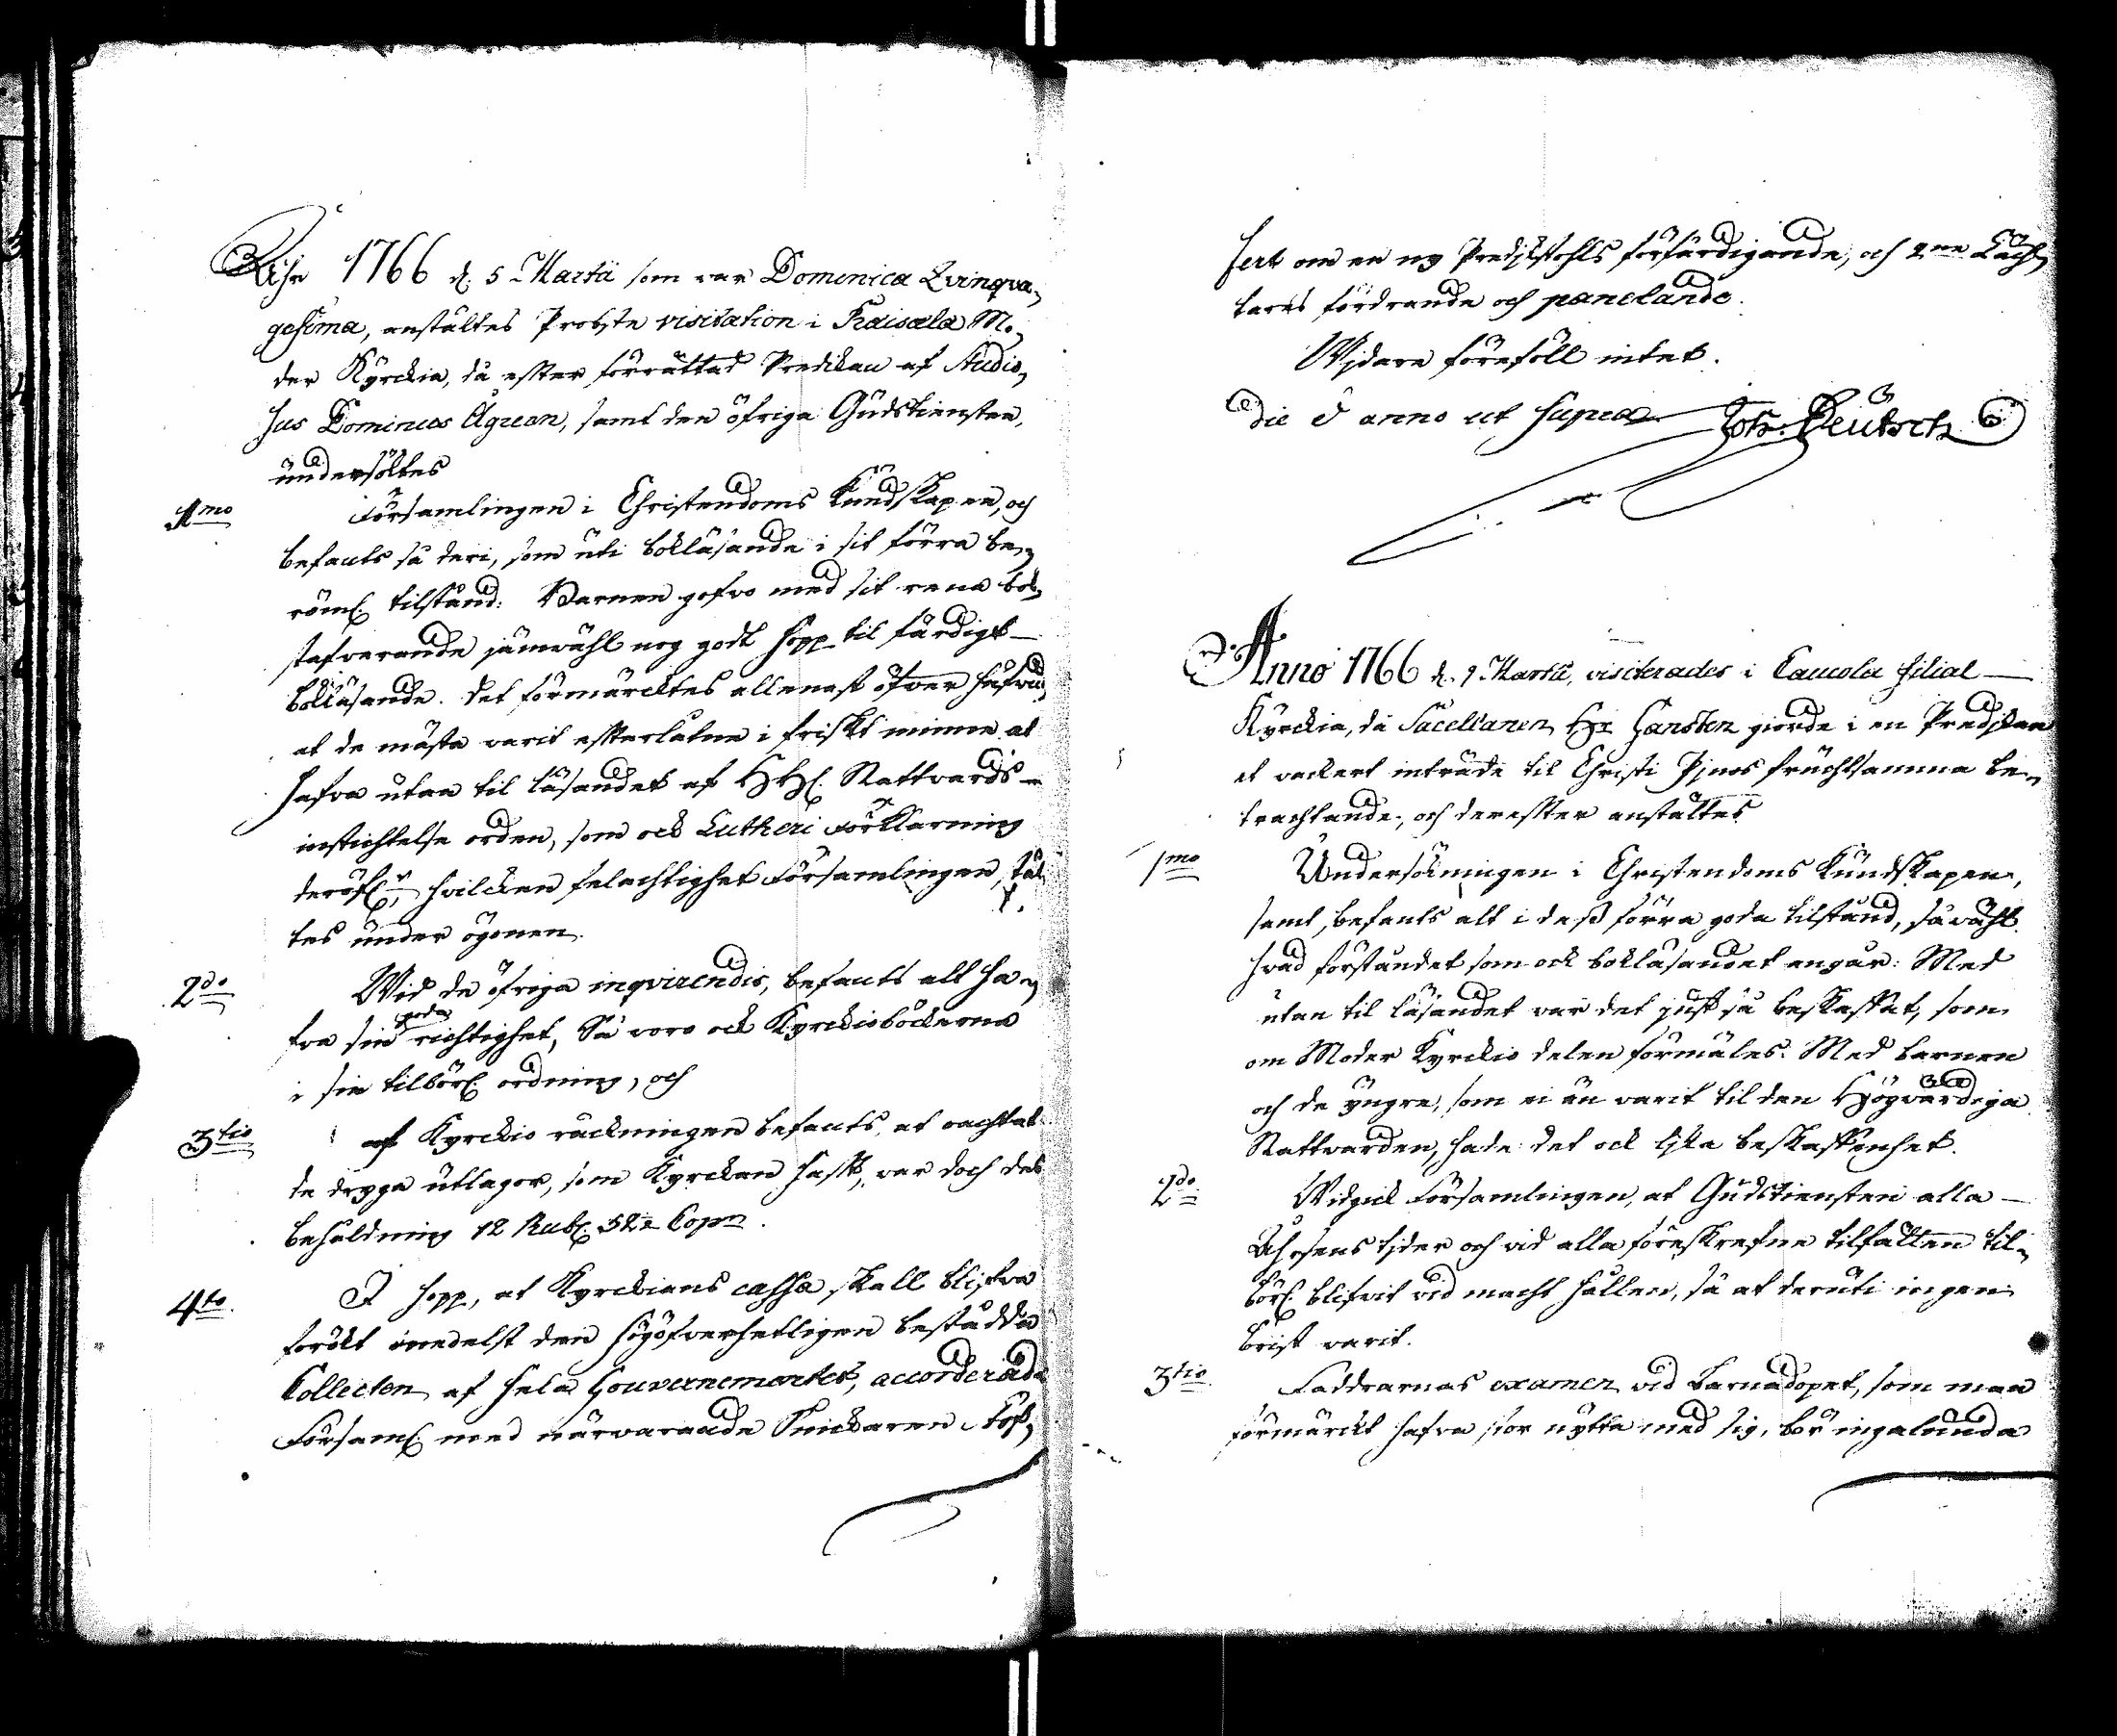 Åhr 1766 d. 5 Martii som var Domenica Qvinqva,,
gesima, anstältes Probste visitation i Räisälä Mo,,
der Kyrckia, då effter förrättad Predikan af Studio,,
sus Dominus Ågrean, samt den öfriga Gudstiensten,
undersöktes
1mo Församlingen i Christendoms Kundskapen, och
befants så deri, som uti bokläsande i sit förra be,,
röml. tilstånd: Barnen gofvo med sit rena bok,,
stafverande jämwähl nog godt hopp til färdigt
bokläsande. Det förmärcktes allenast öfver hufvud
at de måsta varit effterlåtne i friskt minne at
hafva utan til läsandet af HHl. Nattvards
instichtelse orden, som ock Lutheri Förklarning
deröfver, hvilcken felachtighet Församlingen, stäl
tes under ögonen.
2do Wid de öfriga inqvirendis, befants alt ha,,
fva sin goda richtighet, Så voro ock Kyrckioböckerna
i sin tilbörl. ordning, och
3tio af Kyrckio räckningen befants, at oachtat
de dryga utlagor, som Kyrckan hafft, var doch des
behåldning 12 Rubl. 52½ Copn.
4to I hopp, at Kyrckians cassa skall blifva
förökt medelst den högöfverhetligen bestådda
Collecten af hela Gouvernementet, accorderade
Församl. med närvarande Snickaren
fert om en ny Predjkstohls förfärdigande, och 2ne Läch,,
tares fördrande och panelande.
Widare föreföll intet.
Die & anno ut supra Joh: Deutsch
Anno 1766 d. 9 Martii, visiterades i Caucola filial
Kyrckia, då Sacellanen Hr Hansten giorde i en Predjkan
et vackert inträde til Christi Pjnos fruchtsamma be,,
trachtande, och dereffter anstältes
1mo Undersökningen i Christendoms Kundskapen,
samt befants alt i dess förra goda tilstånd, såvähl
hvad förståndet som ock bokläsandet angår: Med
utan til läsandet var det just så beskaffat, som
om Moder Kyrckio delen förmäles. Med barnen
och de yngre, som ei än varit til den Högvärdiga
Nattvarden, hade det ock lika beskaffenhet.
2do Widgick Församlingen, at Gudstiensten alla
Åhrsens tjder och vid alla föreskrefne tilfällen til,,
börl. blifvit vid macht hållen, så at deruti ingen
brist varit.
3tio Faddrarnas examen vid barnadopet, som man
förmärckt hafva stor nytta med sig, bör ingalunda